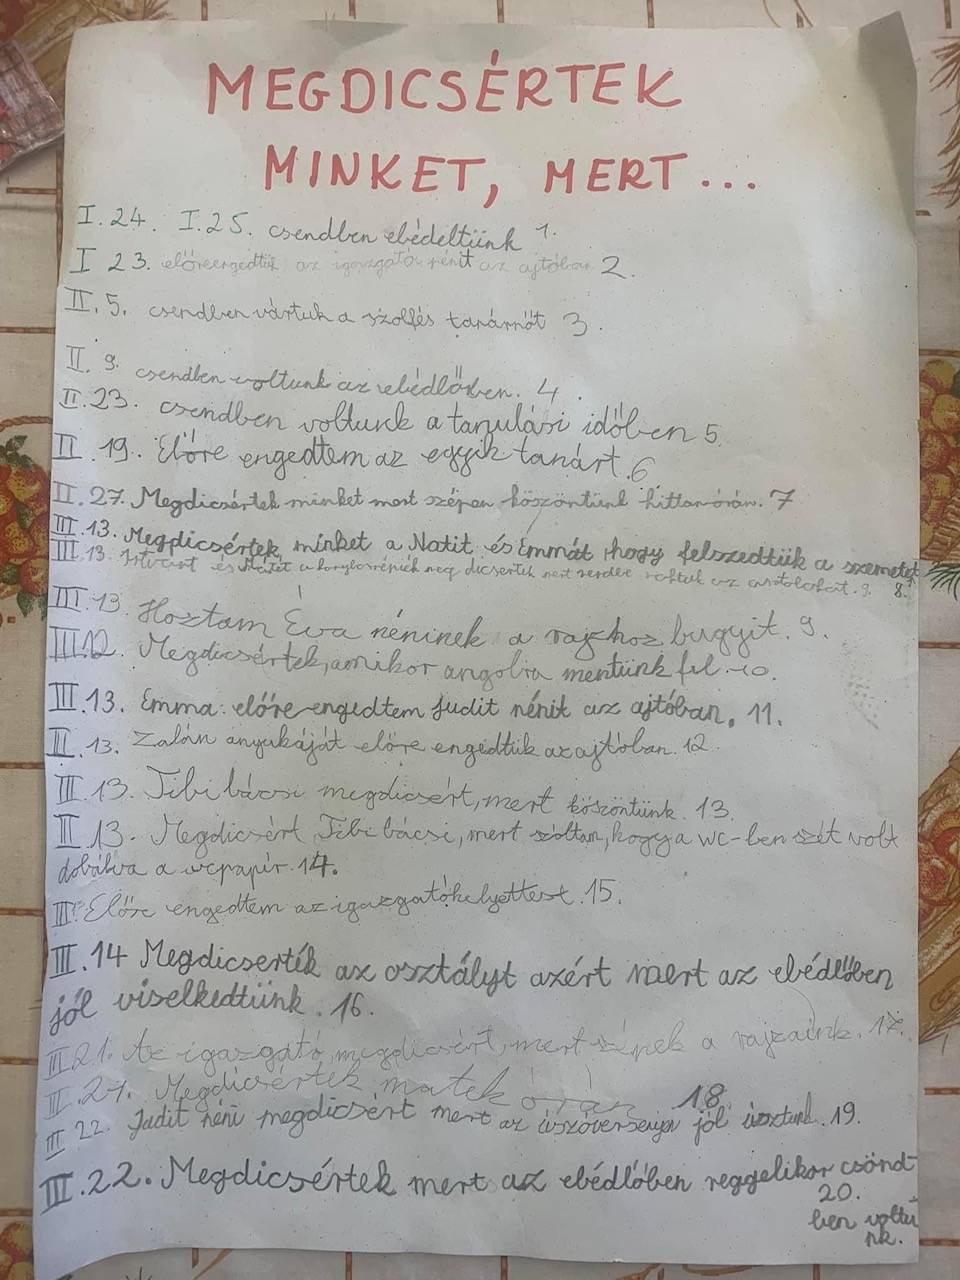 MEGDICSÉRTEK
MINKET, MERT...
I.24. I.25. csendben ebédeltünk 1.
I 23. előreengedtük az igazgató nénit az ajtóban 2.
II.5. csendben vártuk a szolfés tanárnőt 3.
II. 9. csendben voltunk az ebédlőben. 4.
II.23. csendben voltunk a tanulási időben 5.
II 19. Előre engedtem az egyik tanárt. 6
II.27. Megdicsértek minket mert szépen köszöntünk hittanórán. 7
III.13. Megdicsértek minket a Natit és Emmát hogy felszedtük a szemetet
III.13. és Mátét a meg dicsertek mert rendbe raktuk az asztalokat. 9. 8.
III.13. Hoztam Éva néninek a rajzhoz bugyit. 9.
III.12. Megdicsértek, amikor angolra mentünk fel. 10.
III.13. Emma: előre engedtem Judit nénit az ajtóban. 11.
II. 13. Zalán anyukáját előre engedtük az ajtóban. 12
III.13. Tibi bácsi megdicsért, mert köszöntünk. 13.
II 13. Megdicsért Tibi bácsi, mert szóltam, hogy a WC-ben szét volt
dobálva a wcpapír. 14.
III. Előre engedtem az igazgatóhelyettest. 15.
III.14 Megdicserték az osztályt azért mert az ebédlőben
jól viselkedtünk. 16.
III.21. Az igazgató megdicsért, mert szépek a rajzaink. 17.
II.21. Megdicsértek matek órán 18.
III 22. Judit néni megdicsért mert az úszóversenyen jól úsztunk. 19.
III.22. Megdicsértek mert az ebédlőben reggelikor csönd-
20.
ben voltu
nk.